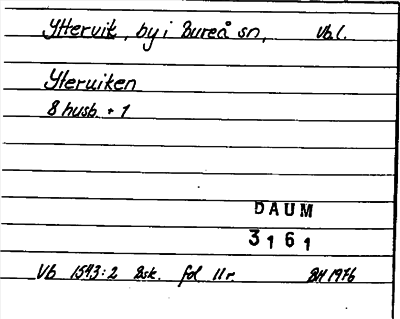 Yttervik, by i Bureå sn, Vb.l.
Yteruiken
8 husb. + 1
DAUM
3161
Vb 1543:2 Bsk. fol 11 r. BH 1976